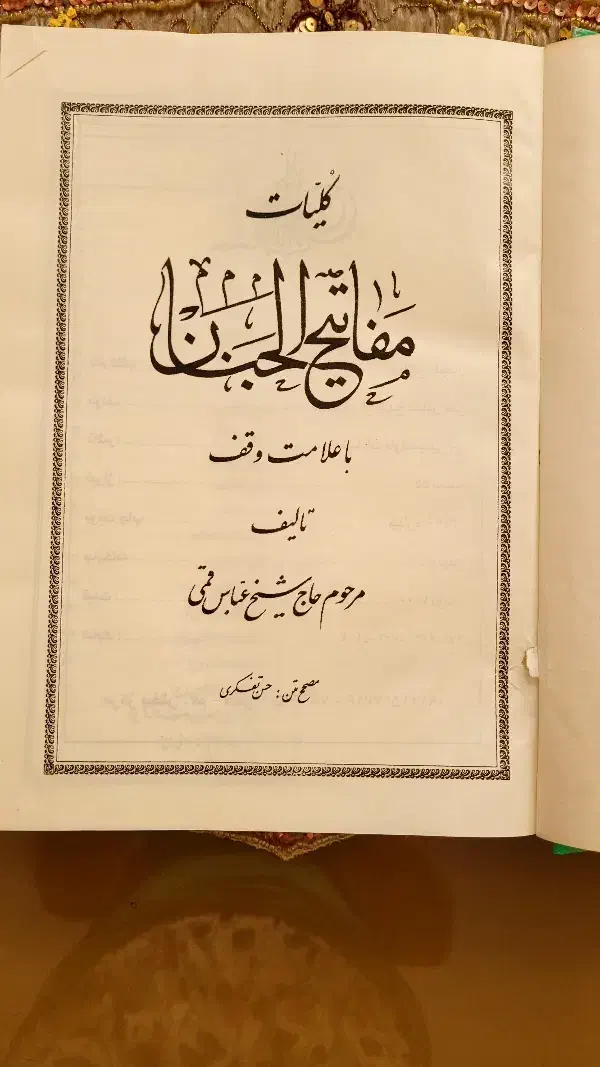 کلیّات
مفاتیح الجنان
با علامت وقف
تالیف
مرحوم حاج شیخ عبّاس قمّی
مصحح متن : حسن تفکری